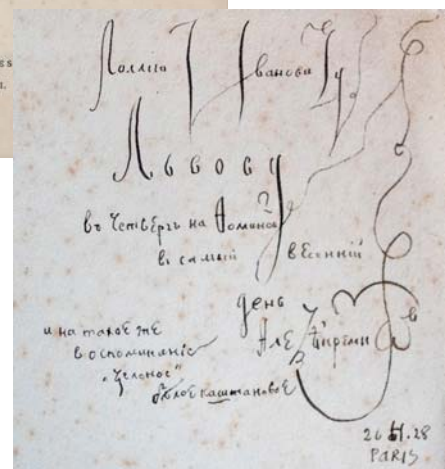 Лоллию Иванови Чу
Львову
въ Четвергъ на Ѳоминой
въ самый весенній
день
и на такое же
воспоминаніе
бѣлое каштановое
26 IV.28
PARIS